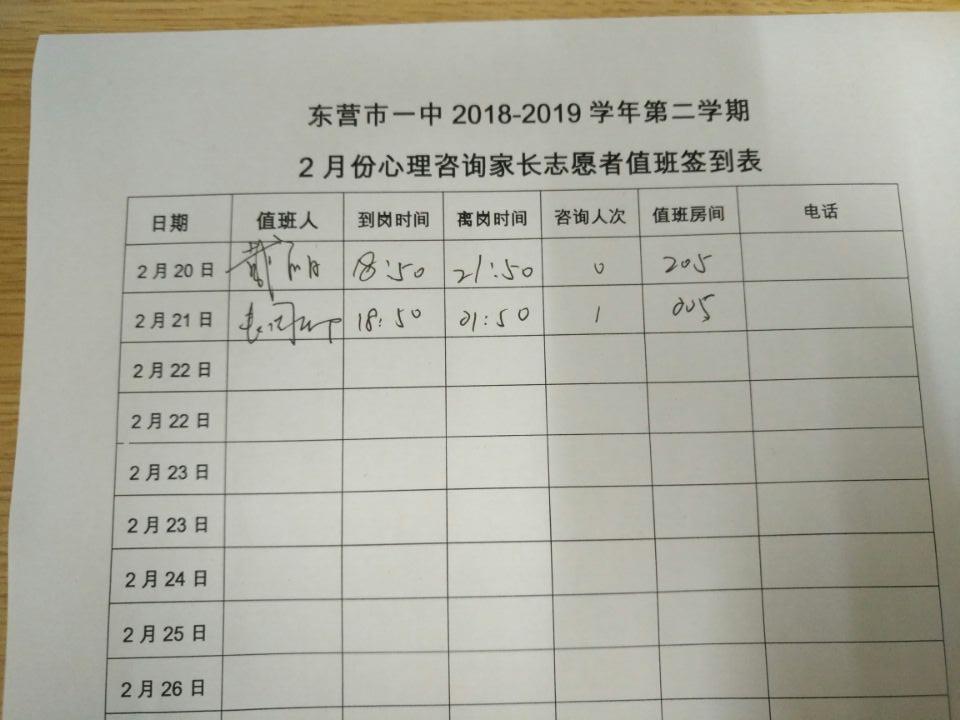 东营市一中 2018-2019 学年第二学期
2 月份心理咨询家长志愿者值班签到表
日期 值班人 到岗时间 离岗时间 咨询人次 值班房间 电话
2 月 20 日 18:50 21:50 0 205
2 月 21 日 18:50 21:50 1 205
2 月 22 日
2 月 22 日
2 月 23 日
2 月 23 日
2 月 24 日
2 月 25 日
2 月 26 日